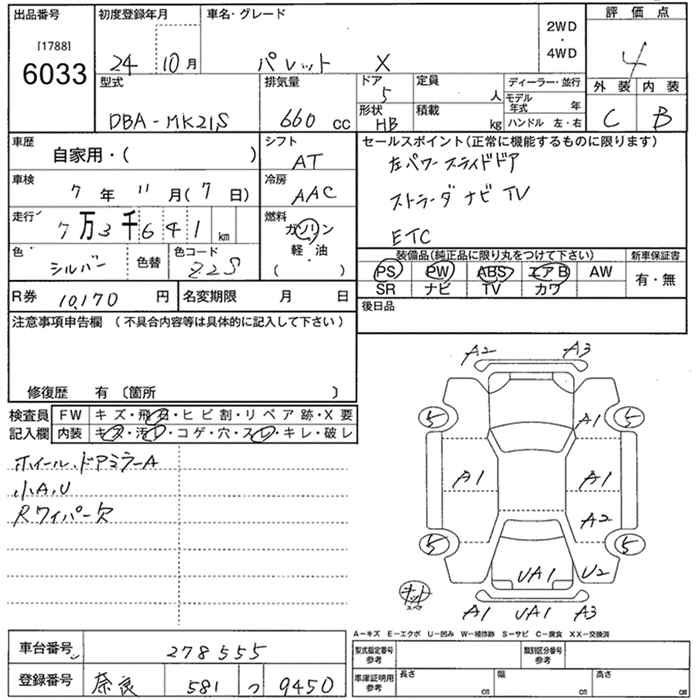 出品番号 初度登録年月 車名・グレード 2WD・4WD 評価点
[1788]
6033 24 10月 パレット X 4
型式 排気量 ドア 定員 ディーラー・並行 外装 内装
DBA-MK21S 660 cc 5 人 モデル年式 年 C B
形状 積載 kg ハンドル 左・右
HB
車歴 シフト セールスポイント(正常に機能するものに限ります)
自家用・( ) AT 左パワースライドドア
車検 冷房
7年11月(7日) AAC ストラーダ ナビ TV
走行 燃料
7万3千641km ガソリン ETC
軽・油
( )
色 色替 色コード 装備品(純正品に限り丸をつけて下さい) 新車保証書
シルバー Z2S PS PW ABS エアB AW 有・無
SR ナビ TV カワ
R券 10,170円 名変期限 月 日 後日品
注意事項申告欄 (不具合内容等は具体的に記入して下さい)
修復歴 有 〔箇所 〕
検査員 FW キズ・飛石・ヒビ割・リペア跡・X要
記入欄 内装 キズ・汚レ・コゲ・穴・スレ・キレ・破レ
ホイール、ドアミラーA
小A,U
Rワイパー欠
A2 A3
5 A1 5
A1 A1
A2
5 5
UA1 U2
キット
A1 UA1 A3
A-キズ E-エクボ U-凹み W-補修跡 S-サビ C-腐食 XX-交換済
車台番号 278555 型式指定番号 参考 類別区分番号 参考
登録番号 奈良 581 つ 9450 車庫証明用 参考 長さ cm 幅 cm 高さ cm